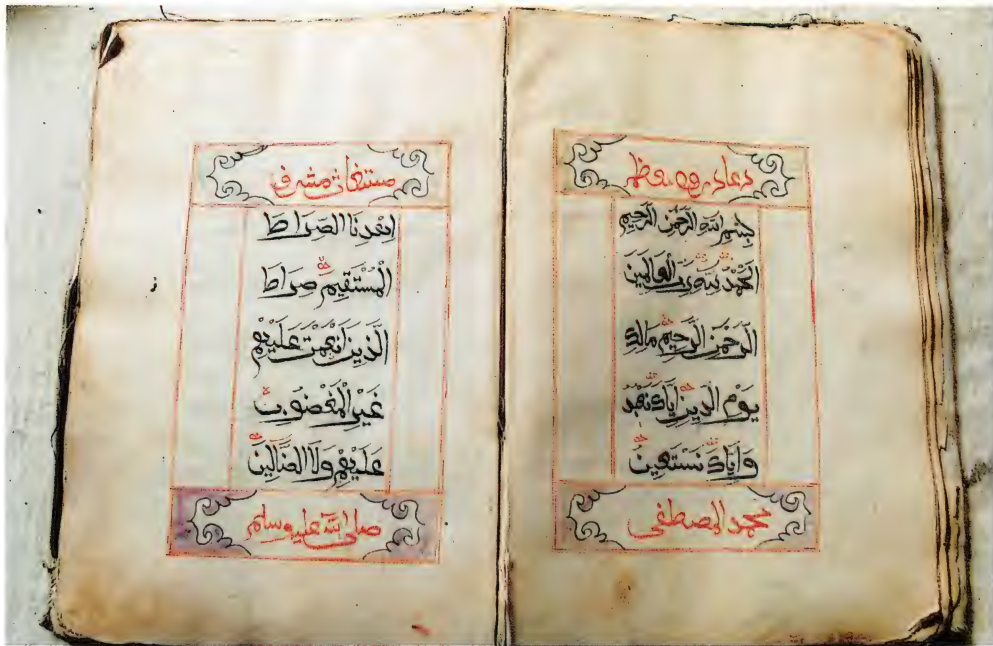 دعاء درود معظم
بِسْمِ اللهِ الرَّحْمٰنِ الرَّحِيْمِ
اَلْحَمْدُ لِلّٰهِ رَبِّ الْعَالَمِيْنَ
الرَّحْمٰنِ الرَّحِيْمِ مَالِكِ
يَوْمِ الدِّيْنِ اِيَّاكَ نَعْبُدُ
وَاِيَّاكَ نَسْتَعِيْنُ
محمد المصطفى
مستغاث مشرف
اِهْدِنَا الصِّرَاطَ
الْمُسْتَقِيْمَ صِرَاطَ
الَّذِيْنَ اَنْعَمْتَ عَلَيْهِمْ
غَيْرِ الْمَغْضُوْبِ
عَلَيْهِمْ وَلَا الضَّالِّيْنَ
صلى الله عليه وسلم